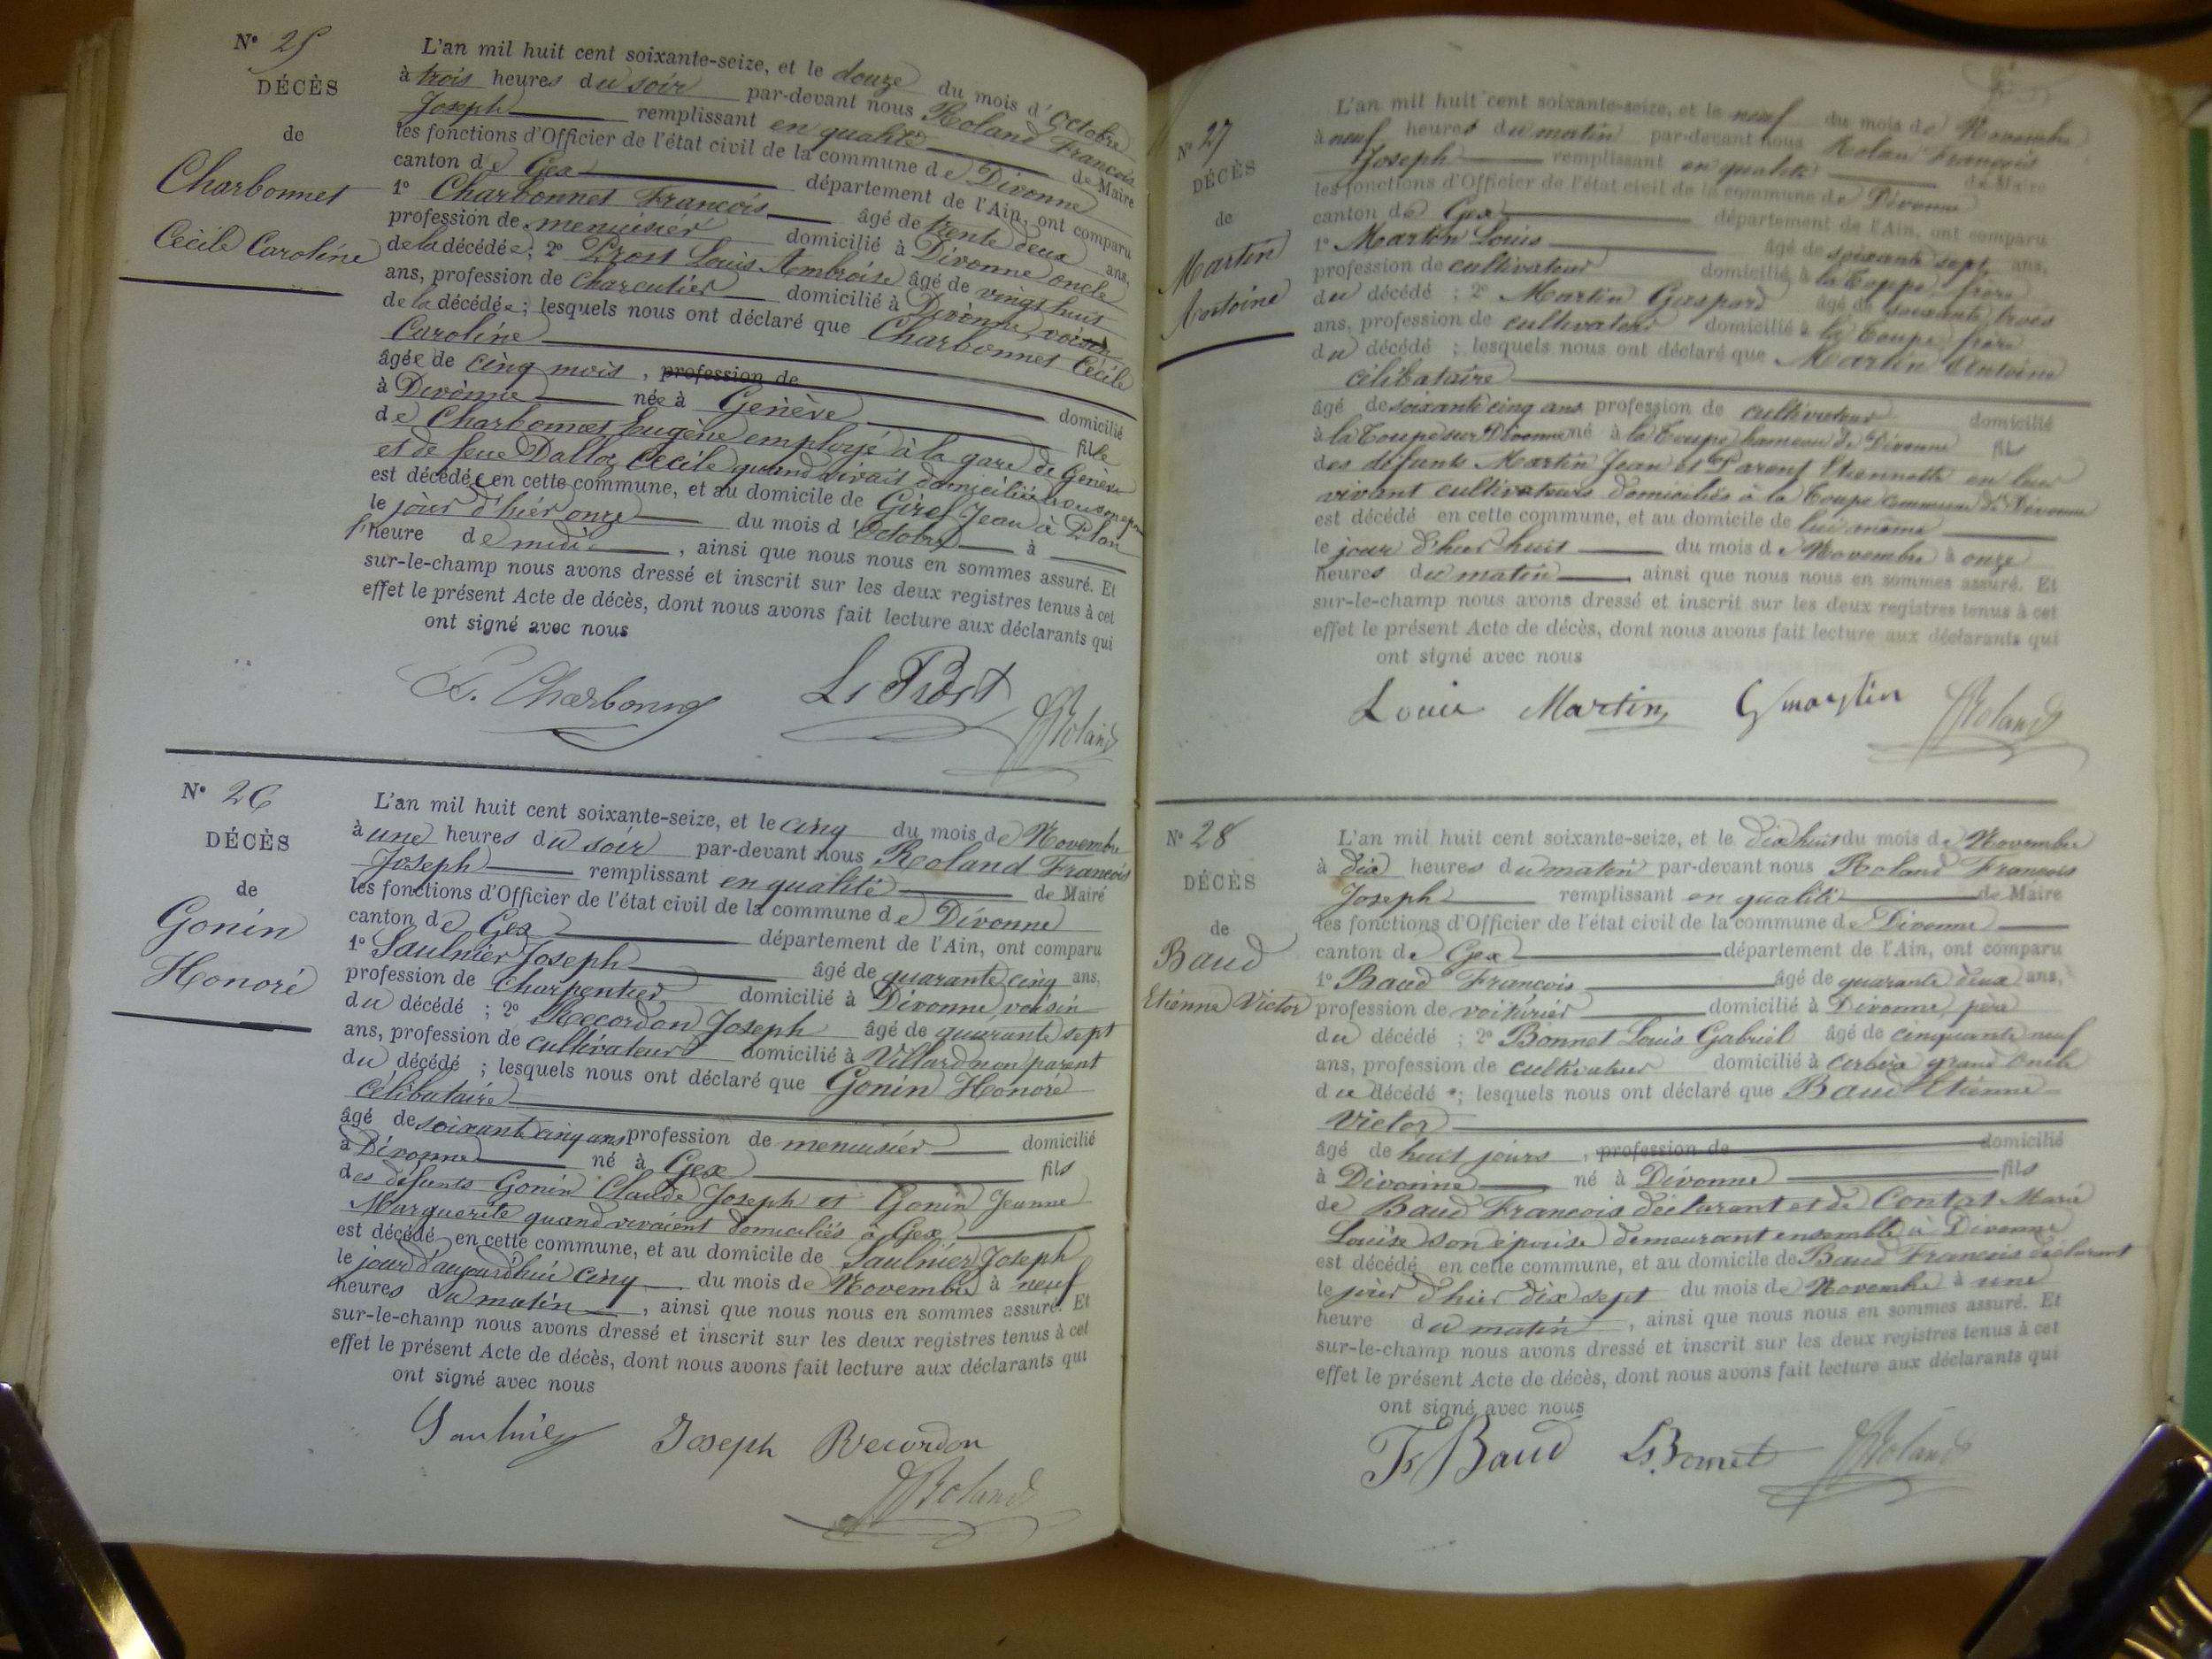 N° 25
DÉCÈS
de
Charbonnet
Cécile Caroline
L'an mil huit cent soixante-seize, et le douze du mois d'Octobre
à trois heures du soir par-devant nous Roland François
Joseph remplissant en qualité de Maire
les fonctions d'Officier de l'état civil de la commune de Divonne
canton de Gex département de l'Ain, ont comparu
1° Charbonnet François âgé de trente deux ans,
profession de menuisier domicilié à Divonne oncle
de la décédée; 2° Prost Louis Ambroise âgé de vingt huit
ans, profession de charcutier domicilié à Divonne, voisin
de la décédée; lesquels nous ont déclaré que Charbonnet Cécile
Caroline
âgée de cinq mois, profession de domicilié
à Divonne née à Genève fille
de Charbonnet Eugène employé à la gare de Genève
et de feue Dalloz Cécile quand vivait domiciliée
est décédée en cette commune, et au domicile de Girel Jean à Plan
le jour d'hier onze du mois d'Octobre à
l'heure de midi, ainsi que nous nous en sommes assuré. Et
sur-le-champ nous avons dressé et inscrit sur les deux registres tenus à cet
effet le présent Acte de décès, dont nous avons fait lecture aux déclarants qui
ont signé avec nous
F. Charbonnet Ls Prost JRoland
N° 26
DÉCÈS
de
Gonin
Honoré
L'an mil huit cent soixante-seize, et le cinq du mois de Novembre
à une heures du soir par-devant nous Roland François
Joseph remplissant en qualité de Maire
les fonctions d'Officier de l'état civil de la commune de Divonne
canton de Gex département de l'Ain, ont comparu
1° Saulnier Joseph âgé de quarante cinq ans,
profession de Charpentier domicilié à Divonne voisin
du décédé ; 2° Recordon Joseph âgé de quarante sept
ans, profession de cultivateur domicilié à Villard non parent
du décédé ; lesquels nous ont déclaré que Gonin Honoré
célibataire
âgé de soixante cinq ans profession de menuisier domicilié
à Divonne né à Gex fils
des défunts Gonin Claude Joseph et Gonin Jeanne
Marguerite quand vivaient domiciliés à Gex
est décédé en cette commune, et au domicile de Saulnier Joseph
le jour d'aujourd'hui cinq du mois de Novembre à neuf
heures du matin, ainsi que nous nous en sommes assuré. Et
sur-le-champ nous avons dressé et inscrit sur les deux registres tenus à cet
effet le présent Acte de décès, dont nous avons fait lecture aux déclarants qui
ont signé avec nous
Saulnier Joseph Recordon
JRoland
N° 27
DÉCÈS
de
Martin
Antoine
L'an mil huit cent soixante-seize, et le neuf du mois de Novembre
à neuf heures du matin par-devant nous Rolan François
Joseph remplissant en qualité de Maire
les fonctions d'Officier de l'état civil de la commune de Divonne
canton de Gex département de l'Ain, ont comparu
1° Martin Louis âgé de soixante sept ans,
profession de cultivateur domicilié à la Coupe frère
du décédé ; 2° Martin Gaspard âgé de soixante trois
ans, profession de cultivateur domicilié à la Coupe frère
du décédé ; lesquels nous ont déclaré que Martin Antoine
célibataire
âgé de soixante cinq ans profession de cultivateur domicilié
à la Coupe sur Divonne né à la Coupe hameau de Divonne fils
des défunts Martin Jean et Parent Etiennette en leur
vivant cultivateurs domiciliés à la Coupe commune de Divonne
est décédé en cette commune, et au domicile de lui même
le jour d'hier huit du mois de Novembre à onze
heures du matin ainsi que nous nous en sommes assuré. Et
sur-le-champ nous avons dressé et inscrit sur les deux registres tenus à cet
effet le présent Acte de décès, dont nous avons fait lecture aux déclarants qui
ont signé avec nous
Louis Martin G martin JRoland
N° 28
DÉCÈS
de
Baud
Etienne Victor
L'an mil huit cent soixante-seize, et le dix huit du mois de Novembre
à dix heures du matin par-devant nous Roland François
Joseph remplissant en qualité de Maire
les fonctions d'Officier de l'état civil de la commune de Divonne
canton de Gex département de l'Ain, ont comparu
1° Baud François âgé de quarante deux ans,
profession de voiturier domicilié à Divonne, père
du décédé ; 2° Bonnet Louis Gabriel âgé de cinquante neuf
ans, profession de cultivateur domicilié à Crefia grand oncle
du décédé ; lesquels nous ont déclaré que Baud Etienne
Victor
âgé de huit jours, profession de domicilié
à Divonne né à Divonne fils
de Baud François déclarant et de Contat Marie
Louise son épouse demeurant ensemble à Divonne
est décédé en cette commune, et au domicile de Baud François déclarant
le jour d'hier dix sept du mois de Novembre à une
heure du matin, ainsi que nous nous en sommes assuré. Et
sur-le-champ nous avons dressé et inscrit sur les deux registres tenus à cet
effet le présent Acte de décès, dont nous avons fait lecture aux déclarants qui
ont signé avec nous
Fs Baud Ls Bonnet JRoland